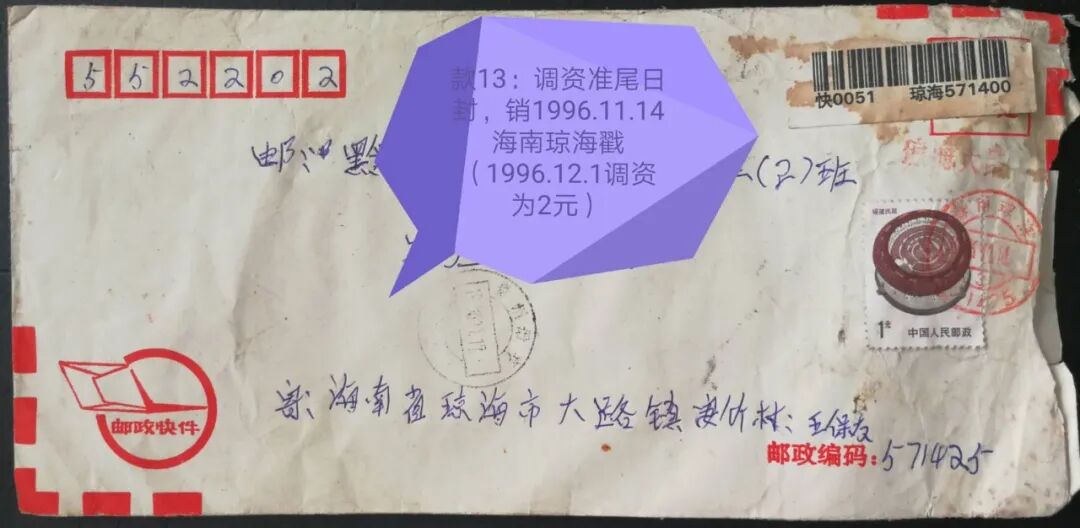 552202
款13：调资准尾日
封，销1996.11.14
海南琼海戳
（1996.12.1调资
为2元）
快0051 琼海571400
邮
二(2)班
福建民居
1元 中国人民邮政
邮政快件
寄：海南省琼海市大路镇
邮政编码：571425